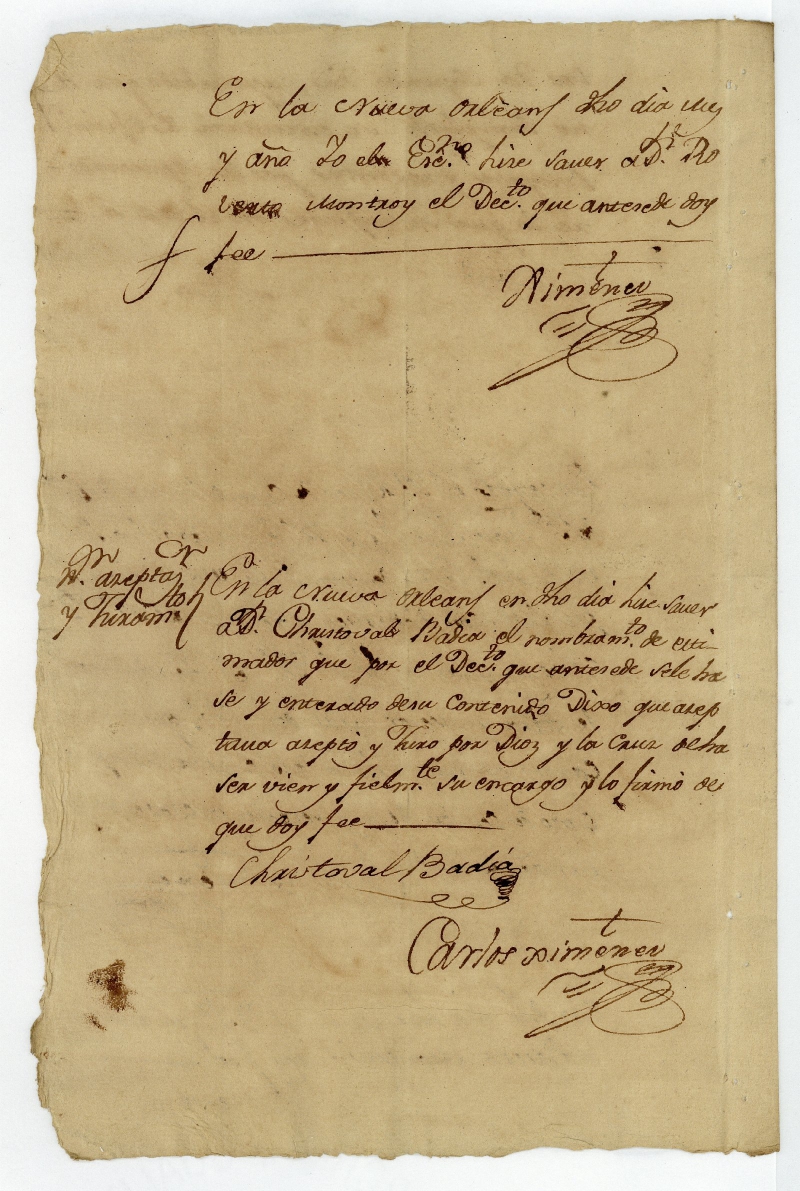 En la Nueva Orleans dho dia Mes
y año Yo el Esc.no hise saver a Dn. Ro
verto Montroy el Dec.to que antesede doy
fee
Ximenez
Nn. asepta.on
y Juram.to
En la Nueva Orleans en dho dia hise saver
a Dn. Christoval Badia el nombram.to de esti-
mador que por el Dec.to que antesede sele ha
se y enterado desu Contenido Dixo que asep
tava aseptó y Juro por Dioz y la Cruz de ha
ser vien y fielm.te su encargo y lo firmó de
que doy fee
Christoval Badia
Carlos Ximenez